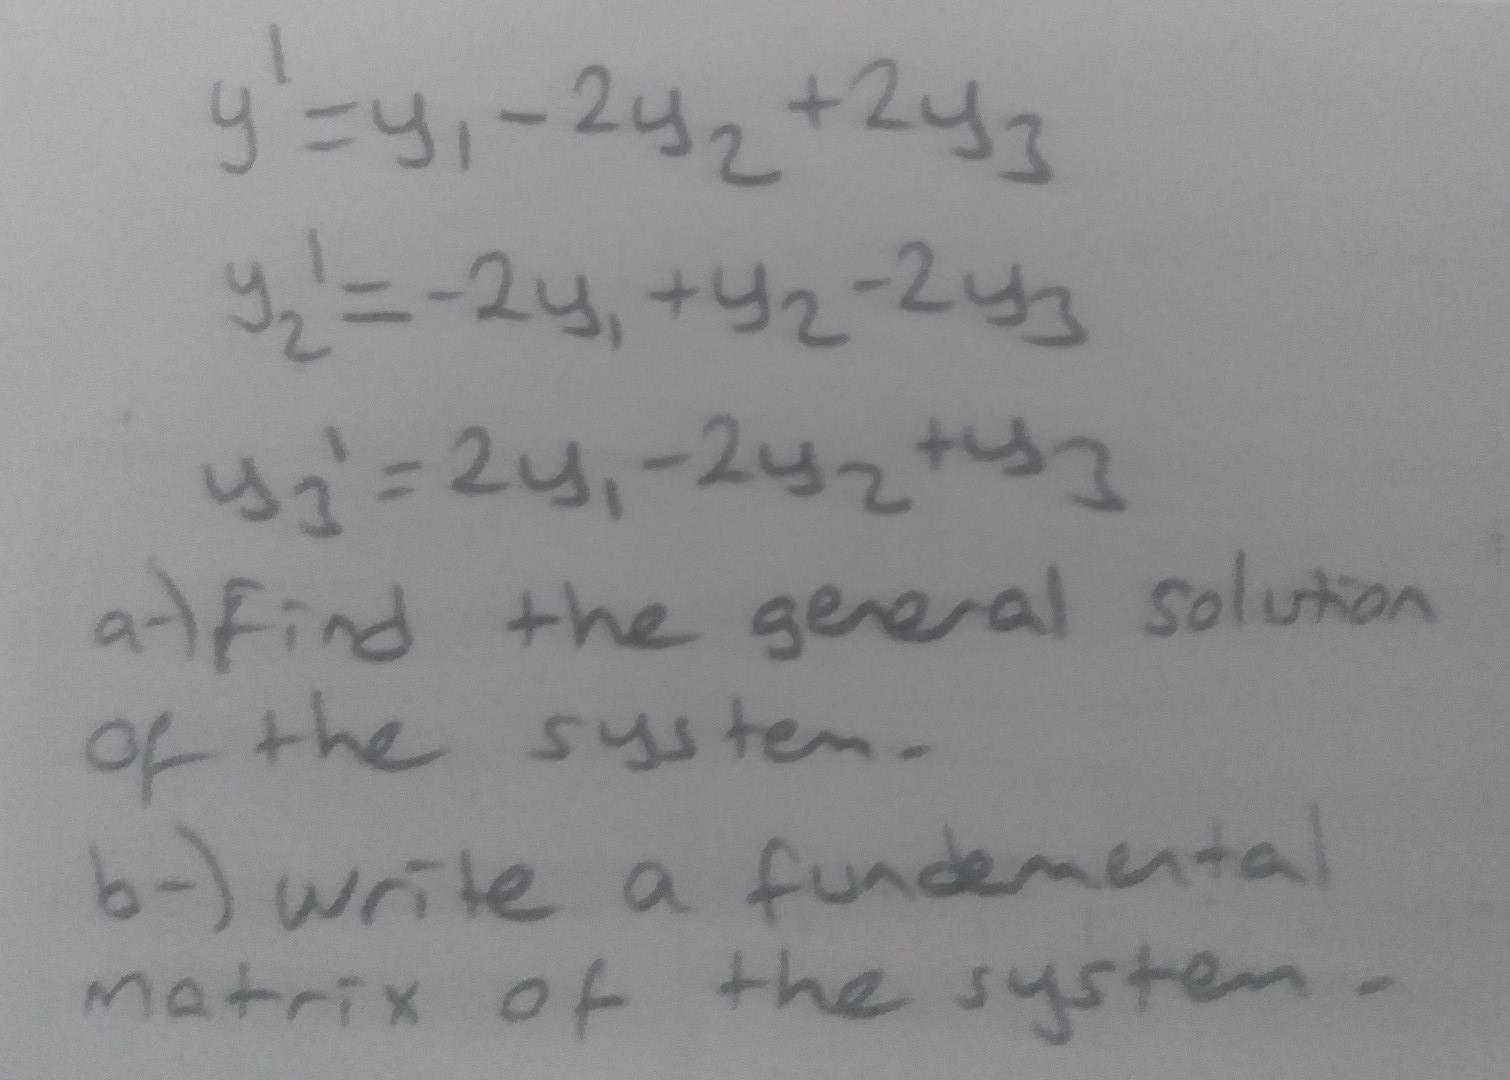 y' = y₁ - 2y₂ + 2y₃
y₂' = -2y₁ + y₂ - 2y₃
y₃' = 2y₁ - 2y₂ + y₃
a-) Find the general solution
of the system.
b-) write a fundemental
matrix of the system.